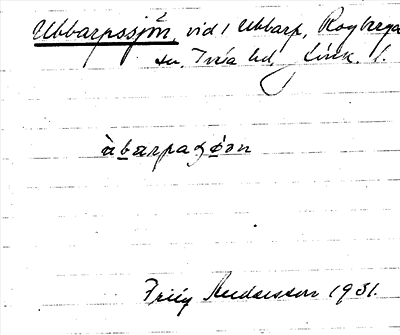 Ubbarpssjön, vid 1 Ubbarp, Rogberga
sn, Tveta hd, Jönk. l.
ùbarpaʂǿən
Frejy Andersson 1931.